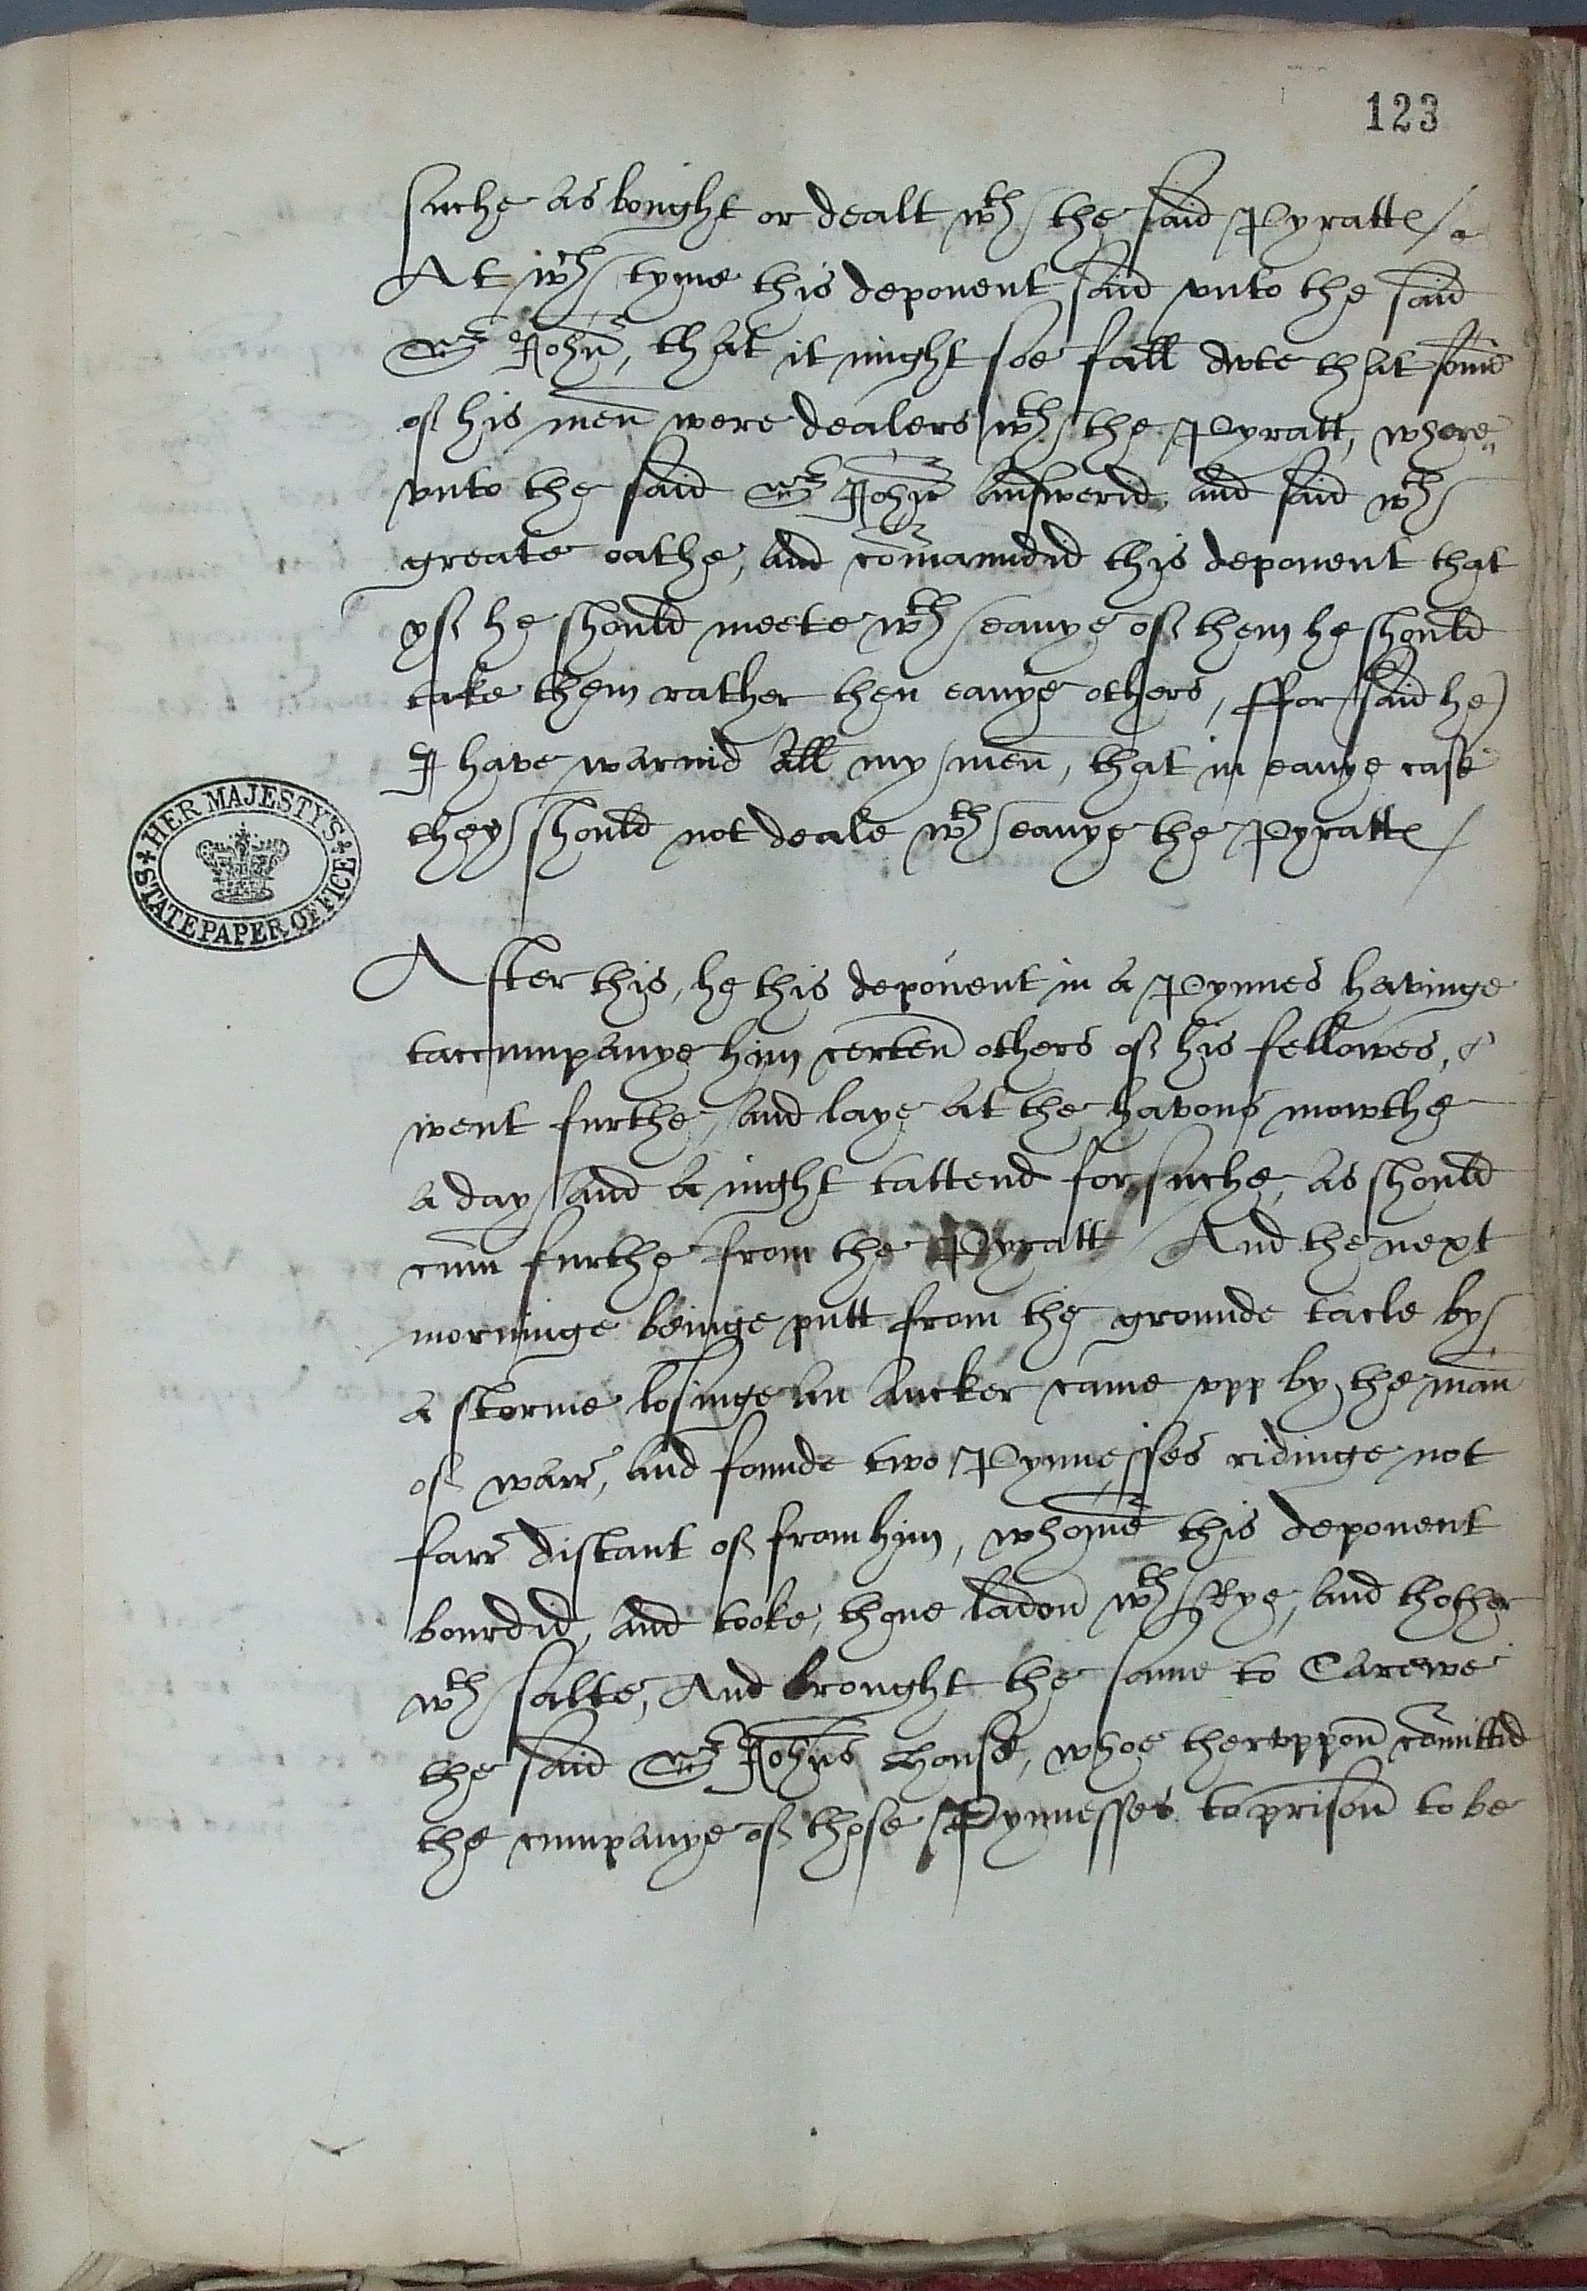 123
suche as bought or dealt wth the said Pyratts
At wch tyme this deponent said vnto the said
Sr John, that it might soe fall owte that some
of his men were dealers wth the Pyratt, where
vnto the said Sr John answerid, and said wth
greate oathe, and comaundid this deponent that
yf he should meete wth eanye of them he should
take them rather then eanye others, ffor said he
I have warnid all my men, that in eanye case
they should not deale wth eanye the Pyratts
HER MAJESTY'S
STATE PAPER OFFICE
After this, he this deponent in a Pynnes havinge
taccumpanye him certen others of his fellowes,
went furthe, and laye at the havons mowthe
a day and a night tattend for suche, as should
cum furthe from the Pyratt And the next
morninge beinge putt from the grounde tacle by
a storme losinge an Ancker came vpp by the man
of warr, and founde two Pynnesses ridinge not
farr distant of from him, whome this deponent
bourdid, and tooke, thone ladon wth Rye, and thother
wth salte, And brought the same to Carewe
the said Sr Johns house, whoe thervppon comittid
the cumpanye of those Pynnesses to prison to be